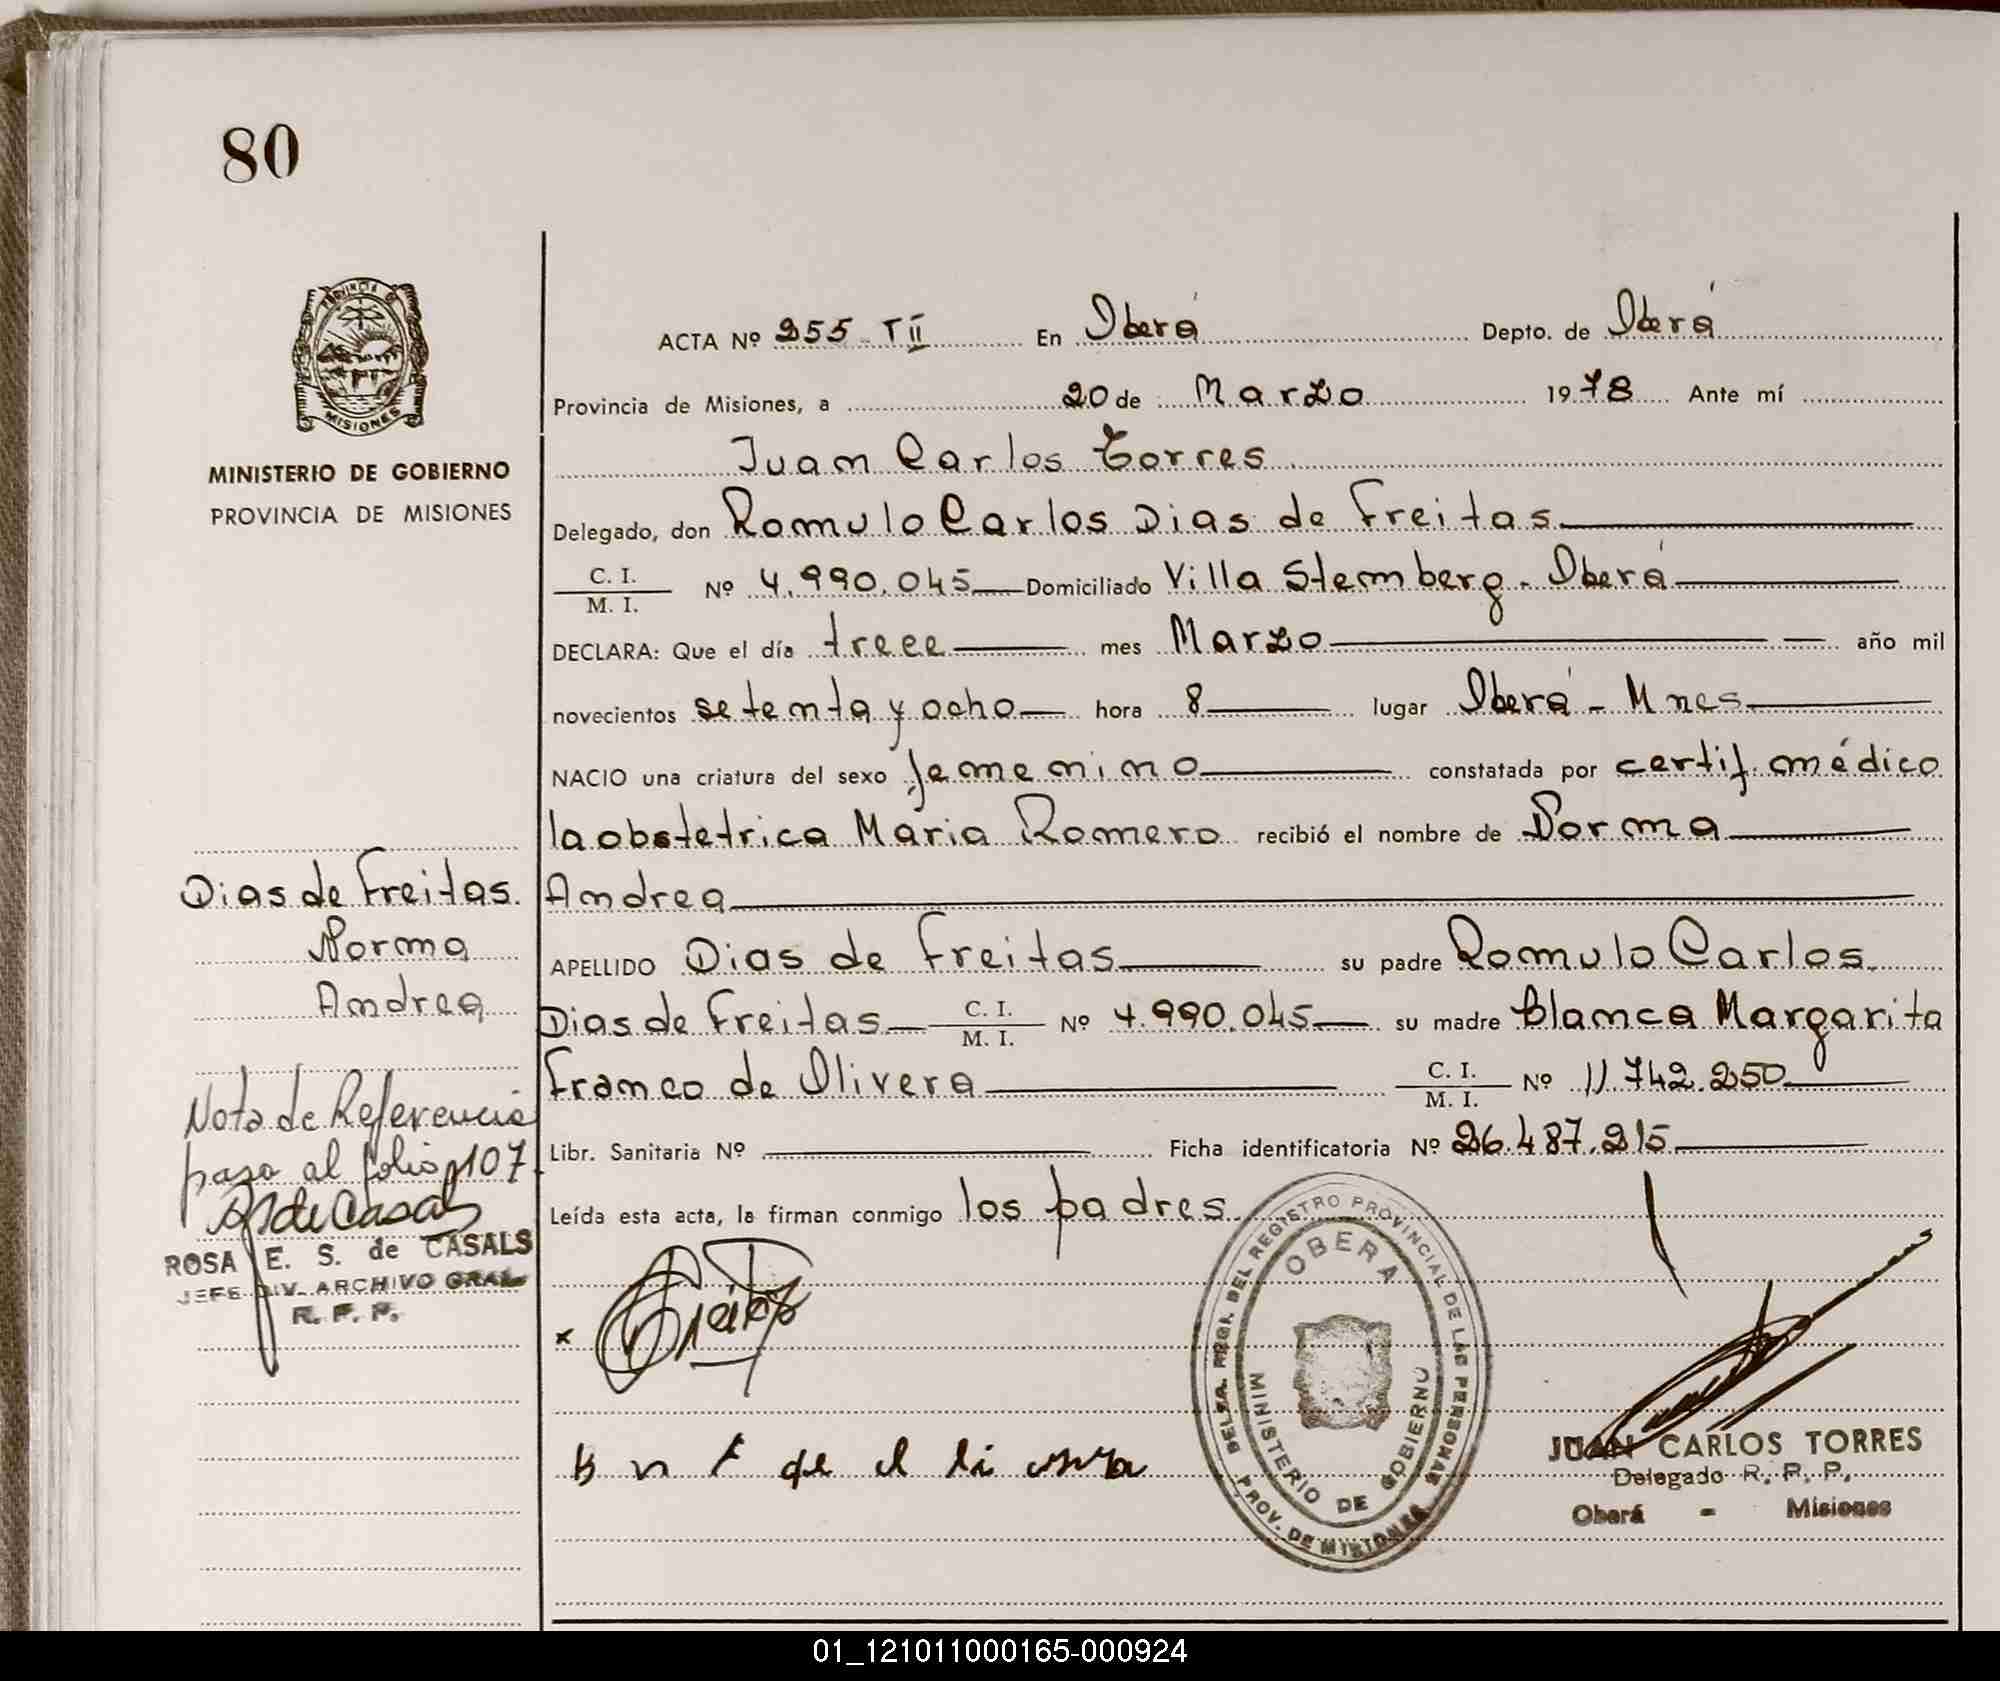 80
PROVINCIA DE
MISIONES
MINISTERIO DE GOBIERNO
PROVINCIA DE MISIONES
ACTA Nº 255 - T II En Oberá Depto. de Oberá
Provincia de Misiones, a 20 de Marzo 1978 Ante mí
Juan Carlos Torres
Delegado, don Romulo Carlos Dias de Freitas
C. I.
M. I. Nº 4.990.045 Domiciliado Villa Stemberg - Oberá
DECLARA: Que el día trece mes Marzo año mil
novecientos setenta y ocho hora 8 lugar Oberá - Mnes
NACIO una criatura del sexo femenino constatada por certif. médico
la obstetrica Maria Romero recibió el nombre de Norma
Andrea
APELLIDO Dias de Freitas su padre Romulo Carlos
Dias de Freitas C. I.
M. I. Nº 4.990.045 su madre Blanca Margarita
Franco de Olivera C. I.
M. I. Nº 11.742.250
Libr. Sanitaria Nº Ficha identificatoria Nº 26.487.215
Leída esta acta, la firman conmigo los padres
Dias de Freitas.
Norma
Andrea
Nota de Referencia
pasa al folio 107
ROSA E. S. de CASALS
JEFE DIV. ARCHIVO GRAL
R. P. P.
x Freitas
de Olivera
DELEG. REGI. DEL REGISTRO PROVINCIAL DE LAS PERSONAS
OBERA
MINISTERIO DE GOBIERNO
PROV. DE MISIONES
JUAN CARLOS TORRES
Delegado R. P. P.
Oberá - Misiones
01_121011000165-000924